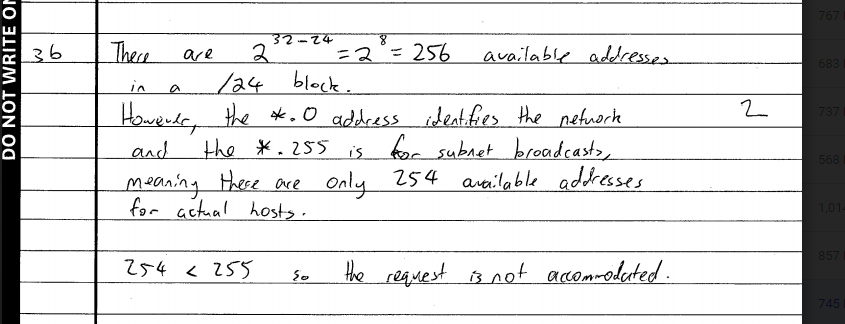 DO NOT WRITE ON
3b There are 2^32-24 = 2^8 = 256 available addresses
in a /24 block.
However, the *.0 address identifies the network
and the *.255 is for subnet broadcasts,
2
meaning there are only 254 available addresses
for actual hosts.
254 < 255 so the request is not accommodated.
767
683
737
568
1,01
857
745